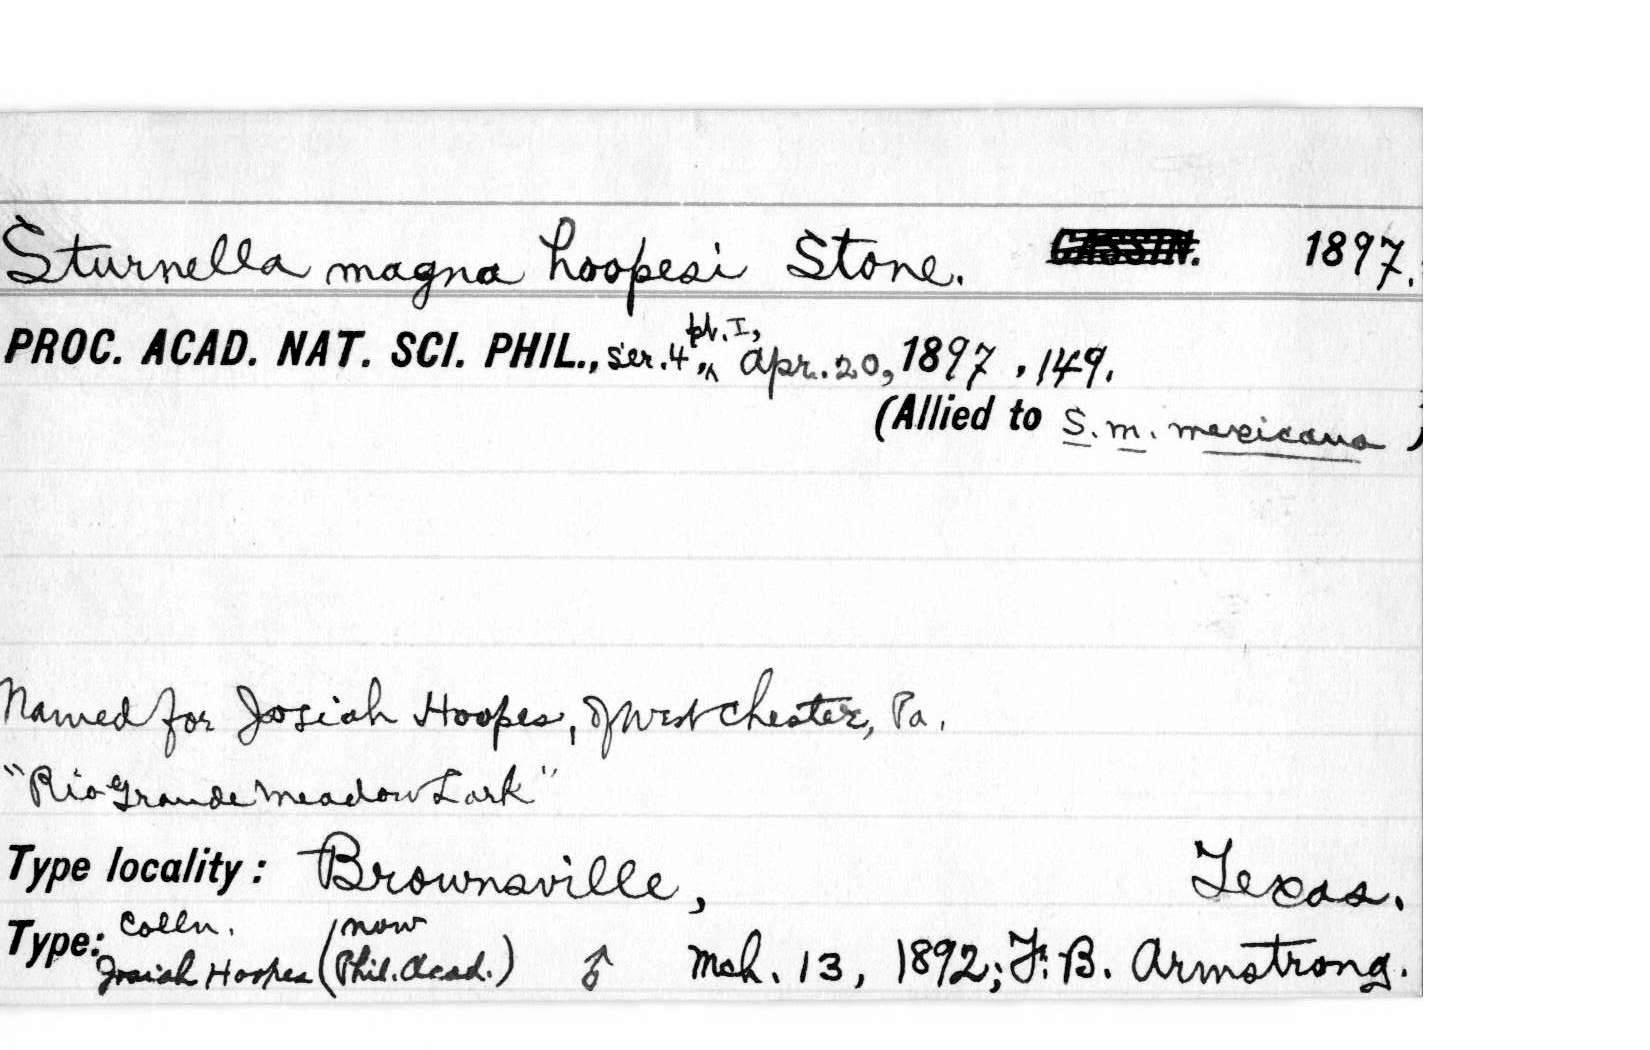 Sturnella magna hoopesi Stone. CASSIN. 1897.
PROC. ACAD. NAT. SCI. PHIL., ser. 4, pt. I, Apr. 20, 1897, 149.
(Allied to S. m. mexicana )
Named for Josiah Hoopes, of West Chester, Pa.
"Rio Grande Meadow Lark"
Type locality: Brownsville, Texas.
Type: Colln. Josiah Hoopes (now Phil. Acad.) ♂ Mch. 13, 1892; F. B. Armstrong.